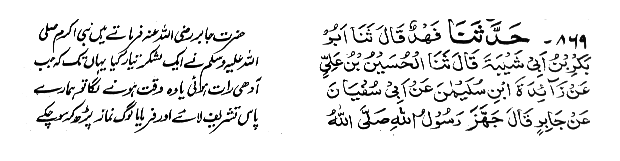 ۸۶۹- حَدَّثَنَا فَهْدٌ قَالَ ثَنَا اَبُوْ
بَكْرِ بْنُ اَبِيْ شَيْبَةَ قَالَ ثَنَا الْحُسَيْنُ بْنُ عَلِيٍّ
عَنْ زَائِدَةَ ابْنِ سُلَيْمٰنَ عَنْ اَبِيْ سُفْيَانَ
عَنْ جَابِرٍ قَالَ جَهَّزَ رَسُوْلُ اللهِ صَلَّى اللهُ
حضرت جابر رضی اللہ عنہ فرماتے ہیں نبی اکرم صلی
اللہ علیہ وسلم نے ایک لشکر تیار کیا یہاں تک کہ جب
آدھی رات ہوگئی یا وہ وقت ہونے لگا تو ہمارے
پاس تشریف لائے اور فرمایا لوگ نماز پڑھ کر سو چکے